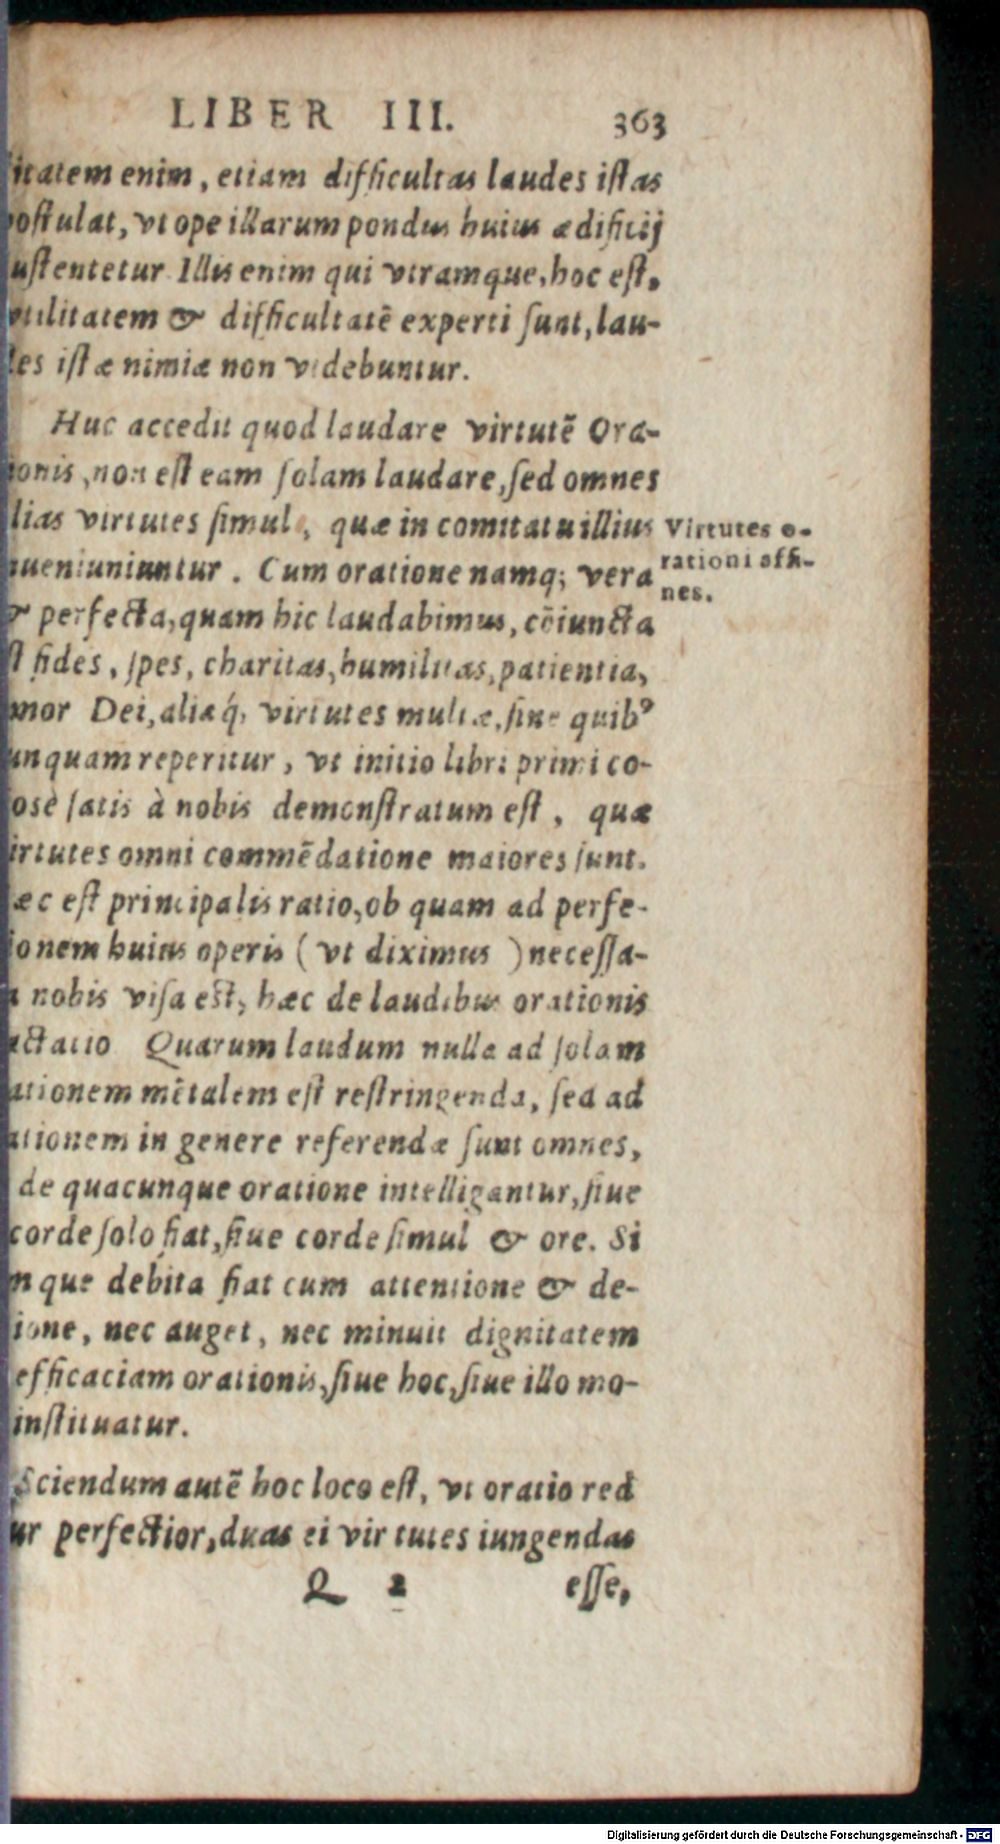 LIBER III. 363
itatem enim, etiam difficultas laudes istas
postulat, vt ope illarum pondus huius ædificij
ustentetur Illis enim qui vtramque, hoc est,
vtilitatem & difficultatē experti sunt, lau-
les istæ nimiæ non videbuntur.
Huc accedit quod laudare virtutē Ora-
ionis, non est eam solam laudare, sed omnes
lias virtutes simul, quæ in comitatu illius
Virtutes o-
rationi affi-
nes.
nueniuniuntur. Cum oratione namq; vera
& perfecta, quam hic laudabimus, cōiuncta
st fides, spes, charitas, humilitas, patientia,
mor Dei, aliæq́; virtutes multæ, sine quibꝰ
unquam reperitur, vt initio libri primi co-
osè satis à nobis demonstratum est, quæ
irtutes omni commēdatione maiores sunt.
æc est principalis ratio, ob quam ad perfe-
ionem huius operis (vt diximus) necessa-
a nobis visa est, hæc de laudibus orationis
actatio Quarum laudum nulla ad solam
ationem mētalem est restringenda, sed ad
ationem in genere referendæ sunt omnes,
de quacunque oratione intelligantur, siue
corde solo fiat, siue corde simul & ore. Si
n que debita fiat cum attentione & de-
ione, nec auget, nec minuit dignitatem
efficaciam orationis, siue hoc, siue illo mo-
instituatur.
Sciendum autē hoc loco est, vt oratio red
ur perfectior, duas ei virtutes iungendas
Q 2 esse,
Digitalisierung gefördert durch die Deutsche Forschungsgemeinschaft - DFG